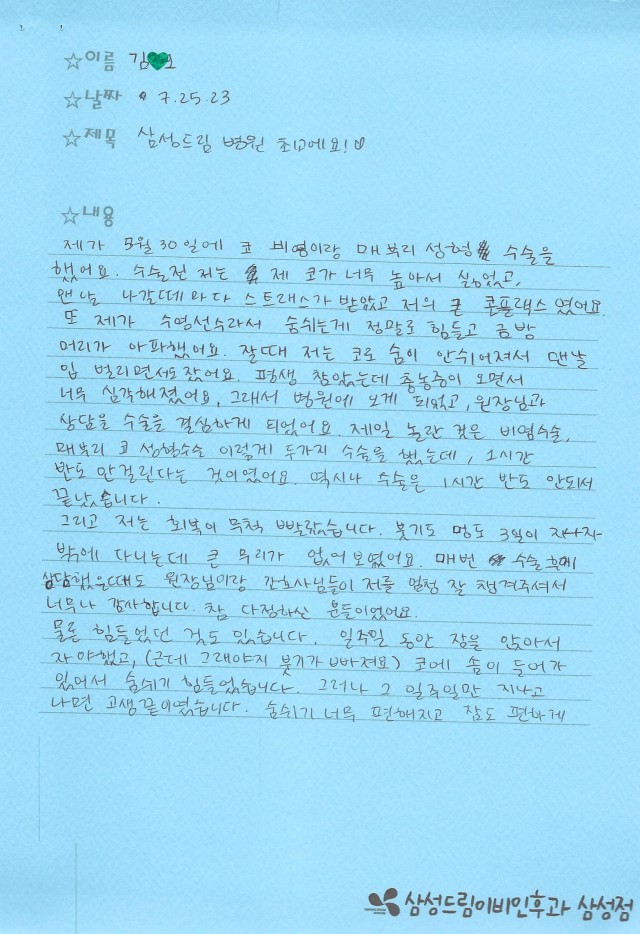 ☆이름 김💚오
☆날짜 7.25.23
☆제목 삼성드림 병원 최고에요!♡
☆내용
제가 5월 30일에 코 비염이랑 매부리 성형 수술을
했어요. 수술전 저는 제 코가 너무 높아서 싫었고,
맨날 나갈때마다 스트래스가 받았고 저의 큰 콤플랙스 였어요.
또 제가 수영선수라서 숨쉬는게 정말로 힘들고 금방
머리가 아파했어요. 잘때 저는 코로 숨이 안쉬어져서 맨날
입 벌리면서도 잤어요. 평생 참았는데 축농증이 오면서
너무 심각해졌어요, 그래서 병원에 오게 되었고, 원장님과
상담을 수술을 결심하게 되었어요. 제일 놀란 것은 비염수술,
매부리 코 성형수술 이렇게 두가지 수술을 했는데, 1시간
반도 안걸린다는 것이였어요. 역시나 수술은 1시간 반도 안되서
끝났습니다.
그리고 저는 회복이 무척 빨랐습니다. 붓기도 멍도 3일이 지나자
밖에 다니는데 큰 무리가 없어 보였어요. 매번 수술후에
상담했을때도 원장님이랑 간호사님들이 저를 엄청 잘 챙겨주셔서
너무나 감사합니다. 참 다정하신 분들이였어요.
물론 힘들었던 것도 있습니다. 일주일 동안 잠을 앉아서
자야했고, (근데 그래야지 붓기가 빠져요) 코에 솜이 들어가
있어서 숨쉬기 힘들었습니다. 그러나 그 일주일만 지나고
나면 고생끝이였습니다. 숨쉬기 너무 편해지고 잠도 편하게
삼성드림이비인후과 삼성점